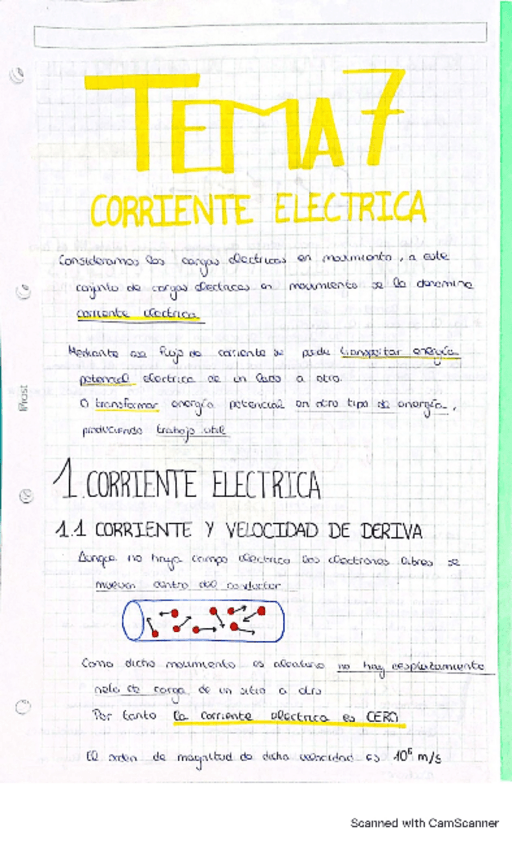 TEMA 7
CORRIENTE ELECTRICA
Consideramos las cargas electricas en movimiento, a este
conjunto de cargas electricas en movimiento se la denomina
corriente electrica
Mediante ese flujo de corriente se puede transportar energía
potencial electrica de un lado a otro.
O transformar energía potencial en otro tipo de energía,
produciendo trabajo util
1. CORRIENTE ELECTRICA
1.1 CORRIENTE Y VELOCIDAD DE DERIVA
Aunque no haya campo electrico los electrones libres se
mueven dentro del conductor
Como dicho movimiento es aleatorio no hay desplazamiento
neto de carga de un sitio a otro
Por tanto la corriente electrica es CERO
El orden de magnitud de dicha velocidad es 10⁶ m/s
iProst
Scanned with CamScanner